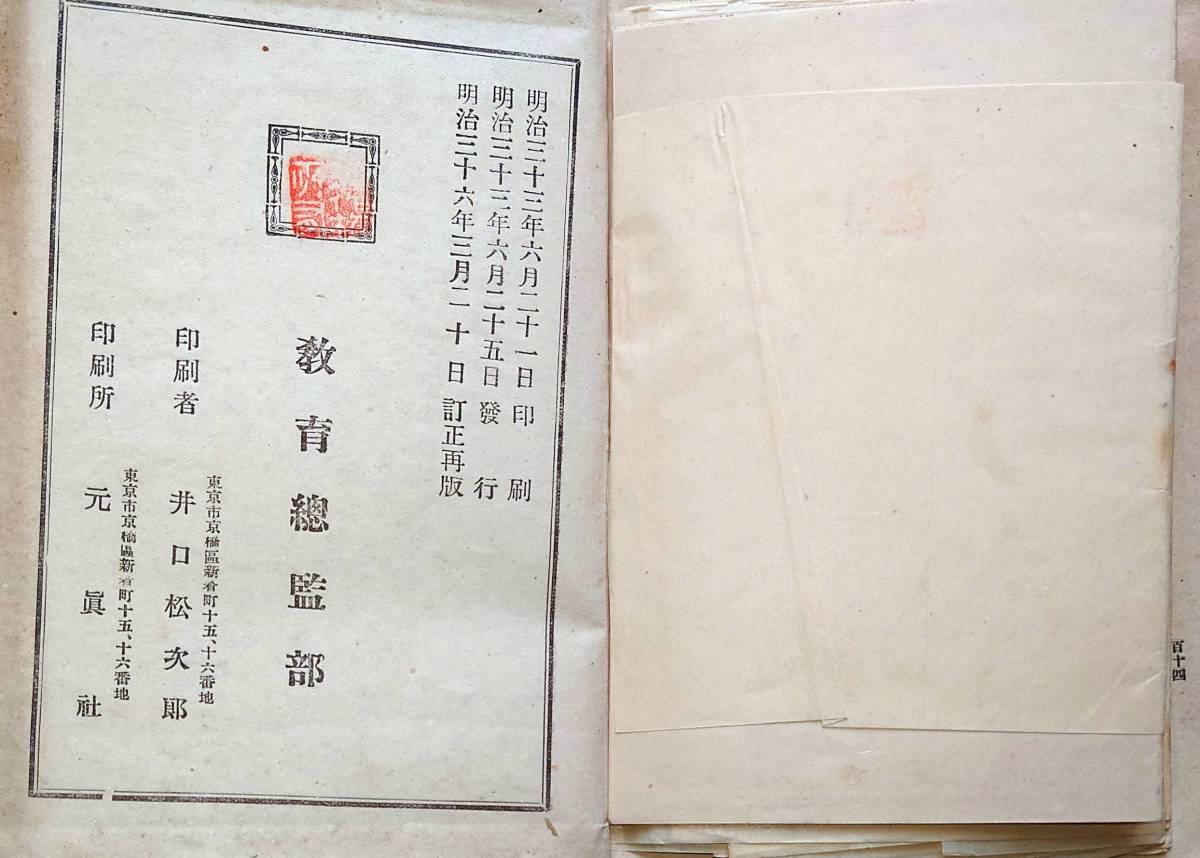 百十四
明治三十三年六月二十一日印刷
明治三十三年六月二十五日發行
明治三十六年三月二十日訂正再版
教育總監部
東京市京橋區新肴町十五、十六番地
印刷者 井口松次郎
東京市京橋區新肴町十五、十六番地
印刷所 元眞社